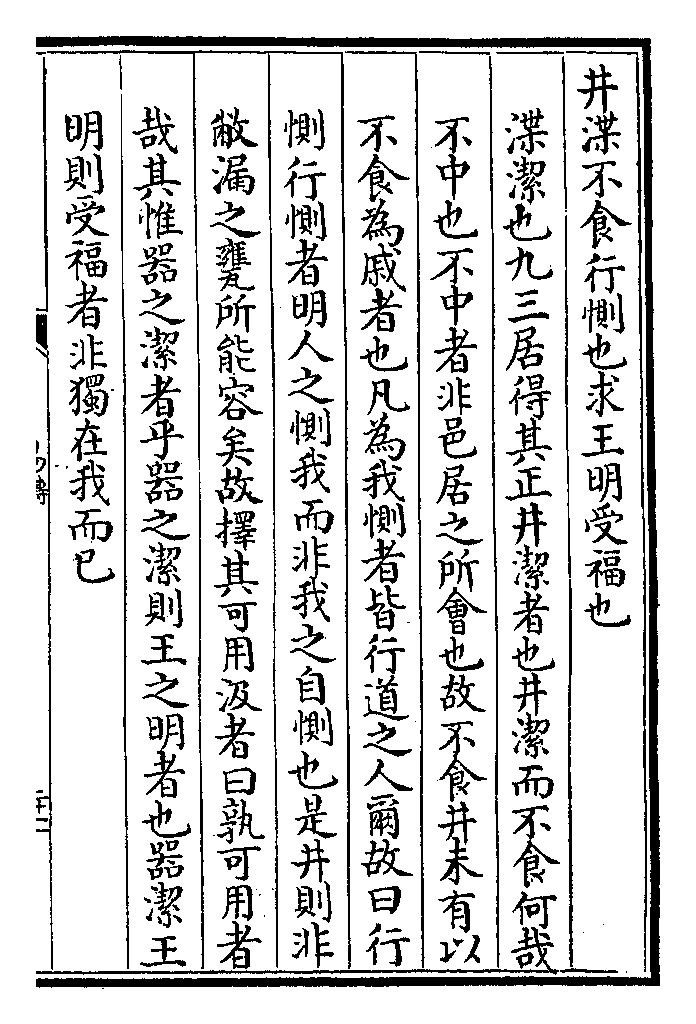 井渫不食行惻也求王明受福也
渫潔也九三居得其正井潔者也井潔而不食何哉
不中也不中者非邑居之所會也故不食井未有以
不食為戚者也凡為我惻者皆行道之人爾故曰行
惻行惻者明人之惻我而非我之自惻也是井則非
敝漏之甕所能容矣故擇其可用汲者曰孰可用者
哉其惟器之潔者乎器之潔則王之明者也器潔王
明則受福者非獨在我而已